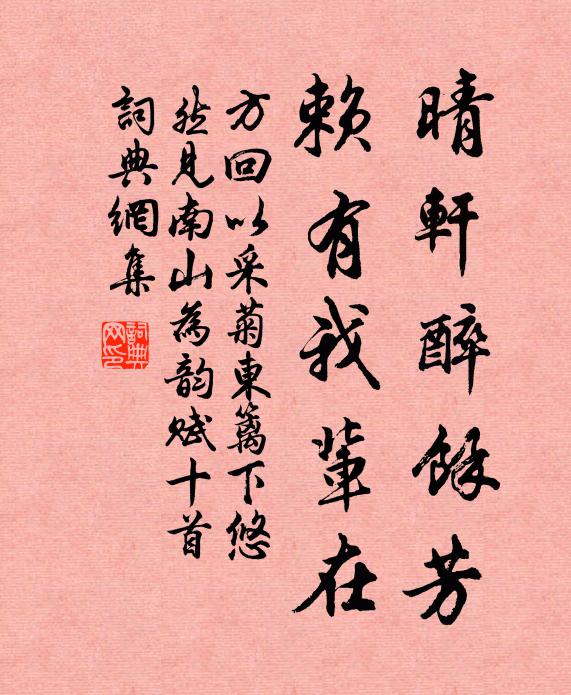 晴軒醉餘芳
賴有我輩在
方回以采菊東籬下悠
然見南山為韵賦十首
詞典網集
詞典
网印